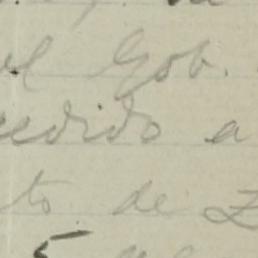 el Gob.
cedido a
to de Z
5